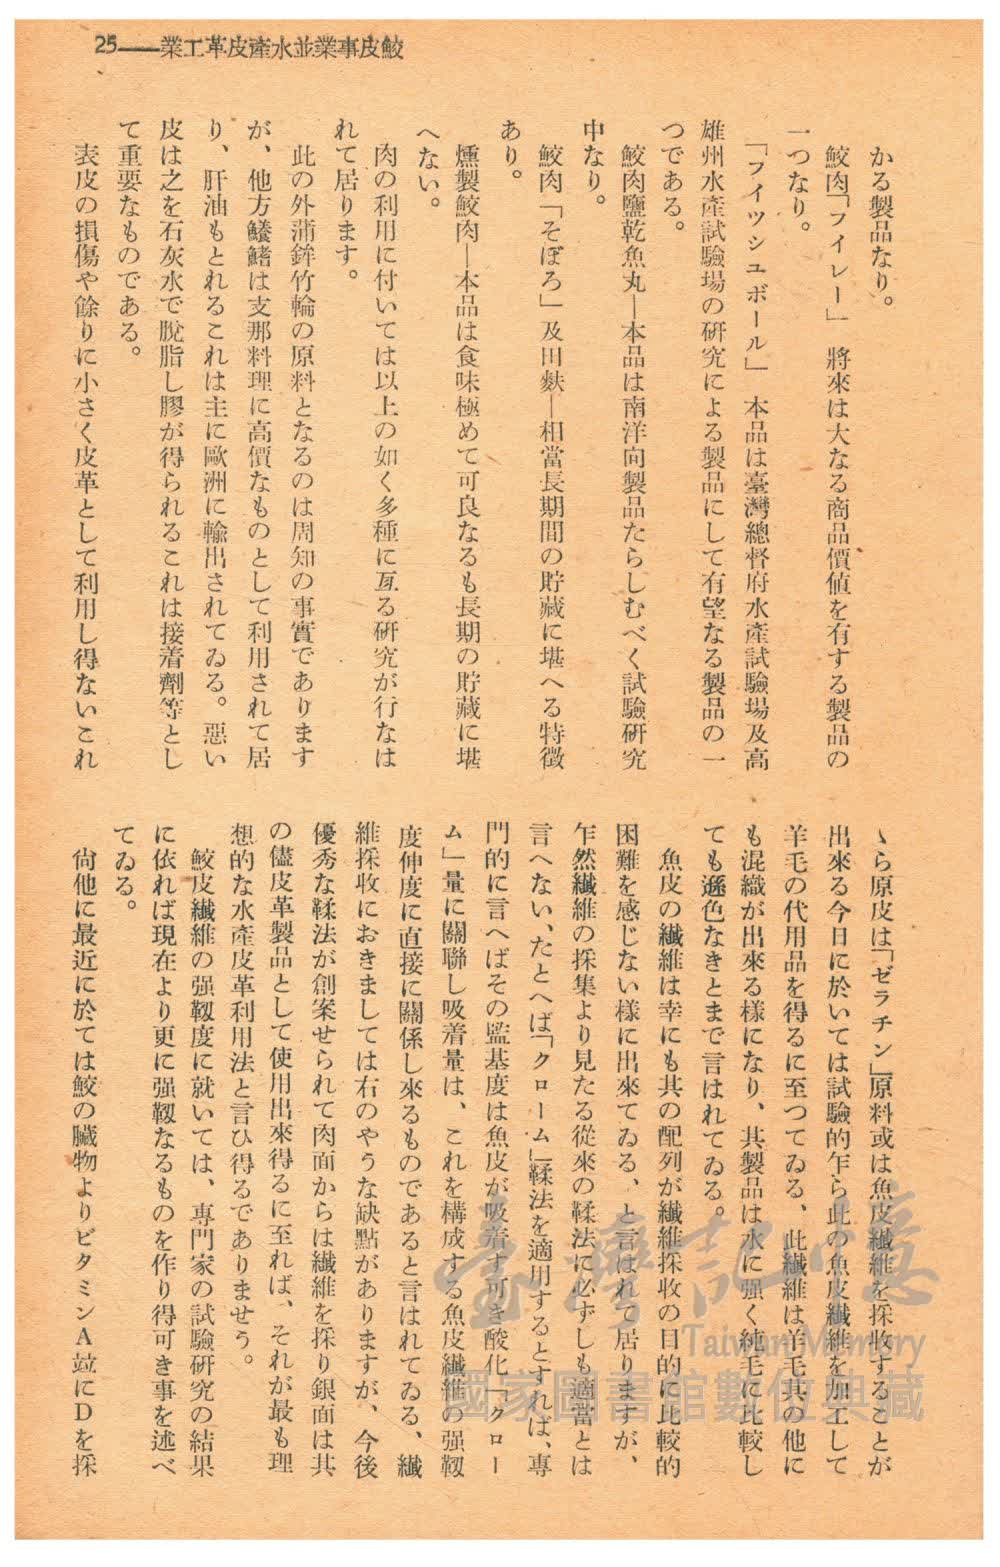 25——業工革皮產水並業事皮鮫
かる製品なり。
鮫肉「フイレー」 將來は大なる商品價値を有する製品の
一つなり。
「フイツシユボール」 本品は臺灣總督府水產試驗場及高
雄州水產試驗場の硏究による製品にして有望なる製品の一
つである。
鮫肉鹽乾魚丸—本品は南洋向製品たらしむべく試驗硏究
中なり。
鮫肉「そぼろ」及田麩—相當長期間の貯藏に堪へる特徵
あり。
燻製鮫肉—本品は食味極めて可良なるも長期の貯藏に堪
へない。
肉の利用に付いては以上の如く多種に亙る硏究が行なは
れて居ります。
此の外蒲鉾竹輪の原料となるのは周知の事實であります
が、他方鱶鰭は支那料理に高價なものとして利用されて居
り、肝油もとれるこれは主に歐洲に輸出されてゐる。惡い
皮は之を石灰水で脫脂し膠が得られるこれは接着劑等とし
て重要なものである。
表皮の損傷や餘りに小さく皮革として利用し得ないこれ
ゝら原皮は「ゼラチン」原料或は魚皮纖維を採收することが
出來る今日に於いては試驗的乍ら此の魚皮纖維を加工して
羊毛の代用品を得るに至つてゐる、此纖維は羊毛其の他に
も混織が出來る樣になり、其製品は水に强く純毛に比較し
ても遜色なきとまで言はれてゐる。
魚皮の纖維は幸にも其の配列が纖維採收の目的に比較的
困難を感じない樣に出來てゐる、と言はれて居りますが、
乍然纖維の採集より見たる從來の鞣法に必ずしも適當とは
言へない、たとへば「クローム」鞣法を適用するとすれば、專
門的に言へばその監基度は魚皮が吸着す可き酸化「クロー
ム」量に關聯し吸着量は、これを構成する魚皮纖維の强靱
度伸度に直接に關係し來るものであると言はれてゐる、纖
維採收におきましては右のやうな缺點がありますが、今後
優秀な鞣法が創案せられて肉面からは纖維を採り銀面は其
の儘皮革製品として使用出來得るに至れば、それが最も理
想的な水產皮革利用法と言ひ得るでありませう。
鮫皮纖維の强靱度に就いては、專門家の試驗硏究の結果
に依れば現在より更に强靱なるものを作り得可き事を述べ
てゐる。
尙他に最近に於ては鮫の臟物よりビタミンA竝にDを採
臺灣記憶
Taiwan Memory
國家圖書館數位典藏